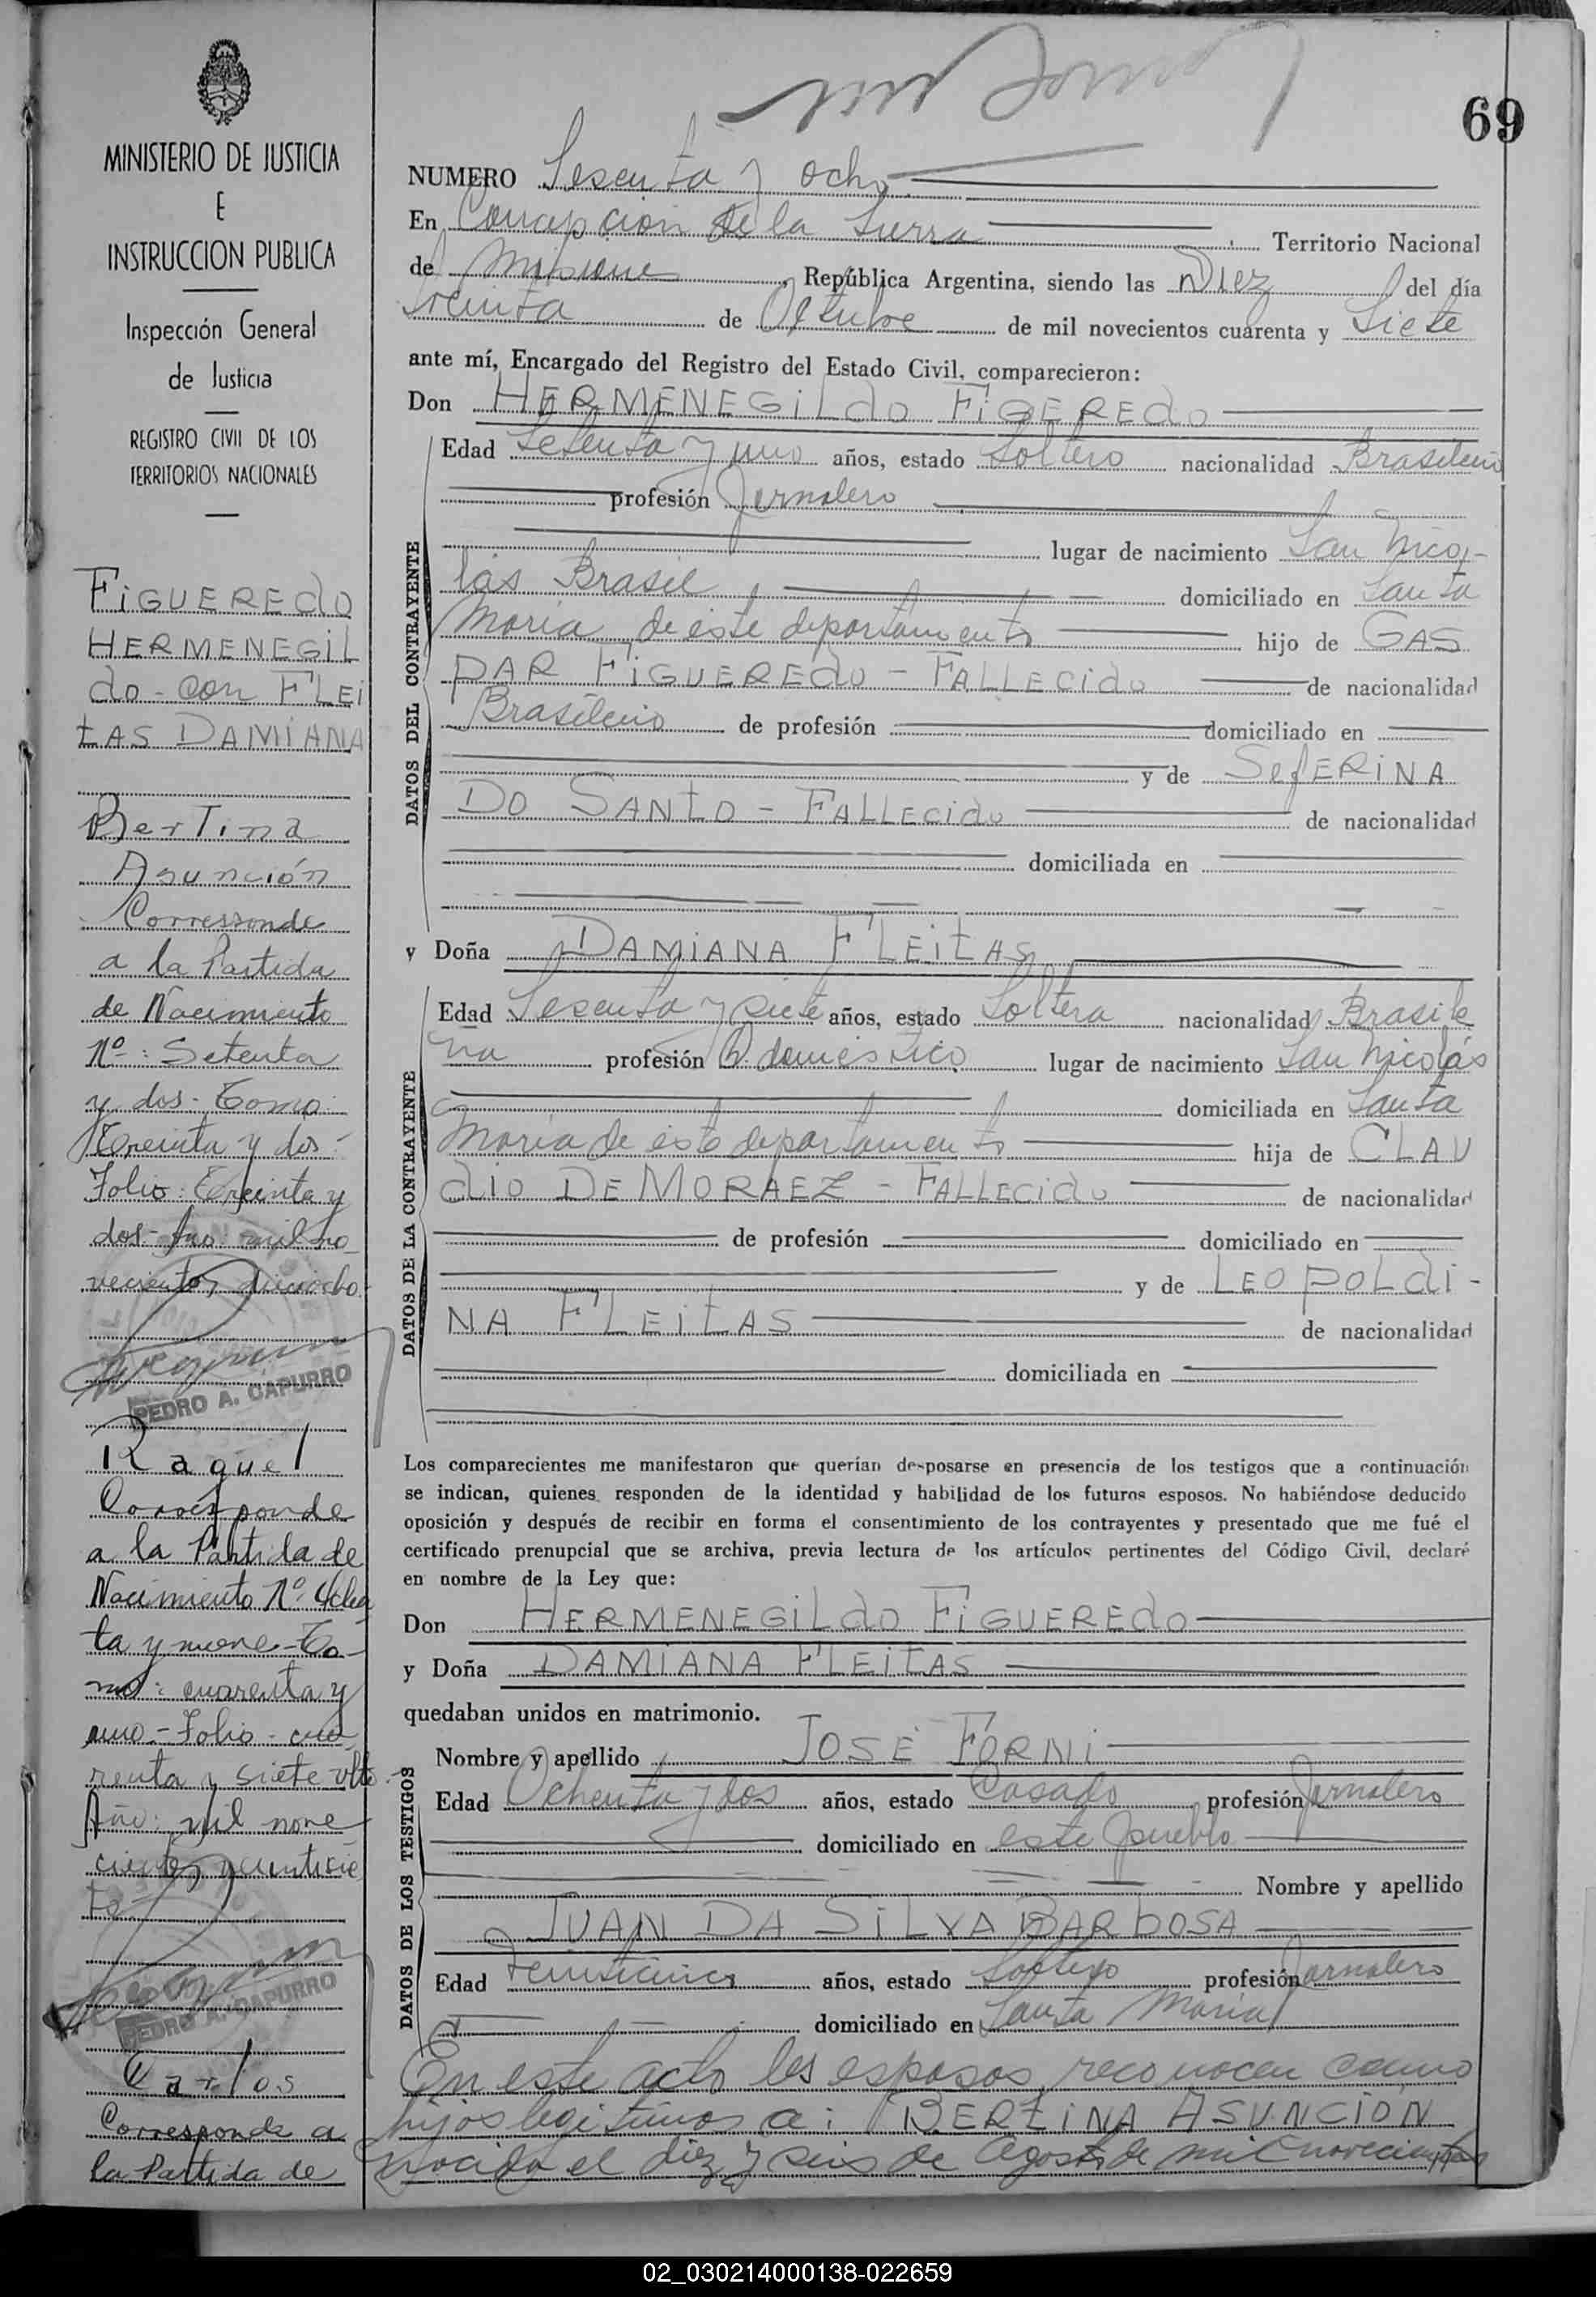 69
MINISTERIO DE JUSTICIA
E
INSTRUCCION PUBLICA
Inspección General
de Justicia
REGISTRO CIVIL DE LOS
TERRITORIOS NACIONALES
FiGUEREdO
HERMENEGiL
do - con FLEi
tAS DAMiANA
Bertina
Asunción
Corresponde
a la Partida
de Nacimiento
Nº: Setenta
y dos - Tomo:
Treinta y dos -
Folio: Treinta y
dos - Año: mil no
vecientos dieciocho.
PEDRO A. CAPURRO
Raquel
Corresponde
a la Partida de
Nacimiento Nº. Ochen
ta y nueve - To-
mo: cuarenta y
uno - Folio - cua
renta y siete vlto.
Año: mil nove
cientos veintisie
te
PEDRO A. CAPURRO
Carlos
Corresponde a
la Partida de
NUMERO Sesenta y ocho
En Concepción de la Sierra Territorio Nacional
de Misiones, República Argentina, siendo las Diez del día
treinta de Octubre de mil novecientos cuarenta y Siete
ante mí, Encargado del Registro del Estado Civil, comparecieron:
Don HERMENEGiLdo FiGEREdo
DATOS DEL CONTRAYENTE
Edad Setenta y uno años, estado Soltero nacionalidad Brasileño
profesión Jornalero
lugar de nacimiento San Nico-
lás Brasil domiciliado en Santa
María de este departamento hijo de GAS
PAR FiGUEREdo - FALLECido de nacionalidad
Brasileño de profesión domiciliado en
y de SefERiNA
DO SANtO - FALLECido de nacionalidad
domiciliada en
y Doña DAMiANA FLEitAS
DATOS DE LA CONTRAYENTE
Edad Sesenta y siete años, estado Soltera nacionalidad Brasile
na profesión Q. domésticos lugar de nacimiento San Nicolás
domiciliada en Santa
María de este departamento hija de CLAU
dio DE MORAEZ - FALLECido de nacionalidad
de profesión domiciliado en
y de LEOPOLdi-
NA FLEitAS de nacionalidad
domiciliada en
Los comparecientes me manifestaron que querían desposarse en presencia de los testigos que a continuación
se indican, quienes responden de la identidad y habilidad de los futuros esposos. No habiéndose deducido
oposición y después de recibir en forma el consentimiento de los contrayentes y presentado que me fué el
certificado prenupcial que se archiva, previa lectura de los artículos pertinentes del Código Civil, declaré
en nombre de la Ley que:
Don HERMENEGiLdo FiGUEREdo
y Doña DAMiANA FLEitAS
quedaban unidos en matrimonio.
DATOS DE LOS TESTIGOS
Nombre y apellido JOSÉ FORNi
Edad Ochenta y dos años, estado Casado profesión Jornalero
domiciliado en este pueblo
Nombre y apellido
JUAN DA SiLVA BARbOSA
Edad Veinticinco años, estado Soltero profesión Jornalero
domiciliado en Santa María
En este acto los esposos reconocen como
hijos legítimos a: BERTiNA ASUNCiÓN
nacida el diez y seis de Agosto de mil novecientos
02_030214000138-022659